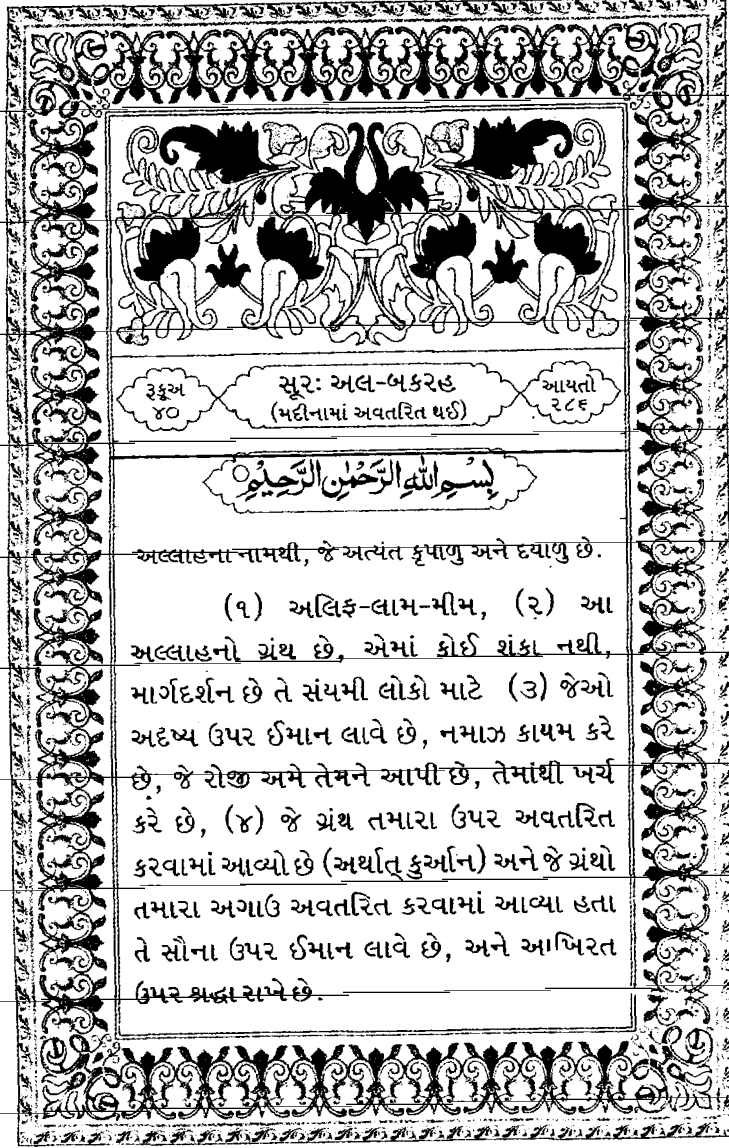 રુકૂઅ
૪૦
સૂરઃ અલ-બકરહ
(મદીનામાં અવતરિત થઈ)
આયતો
૨૮૬
بِسْمِ اللهِ الرَّحْمٰنِ الرَّحِيْمِ
અલ્લાહના નામથી, જે અત્યંત કૃપાળુ અને દયાળુ છે.
(૧) અલિફ-લામ-મીમ, (૨) આ
અલ્લાહનો ગ્રંથ છે, એમાં કોઈ શંકા નથી,
માર્ગદર્શન છે તે સંયમી લોકો માટે (૩) જેઓ
અદૃષ્ય ઉપર ઈમાન લાવે છે, નમાઝ કાયમ કરે
છે, જે રોજી અમે તેમને આપી છે, તેમાંથી ખર્ચ
કરે છે, (૪) જે ગ્રંથ તમારા ઉપર અવતરિત
કરવામાં આવ્યો છે (અર્થાત્ કુર્આન) અને જે ગ્રંથો
તમારા અગાઉ અવતરિત કરવામાં આવ્યા હતા
તે સૌના ઉપર ઈમાન લાવે છે, અને આખિરત
ઉપર શ્રદ્ધા રાખે છે.